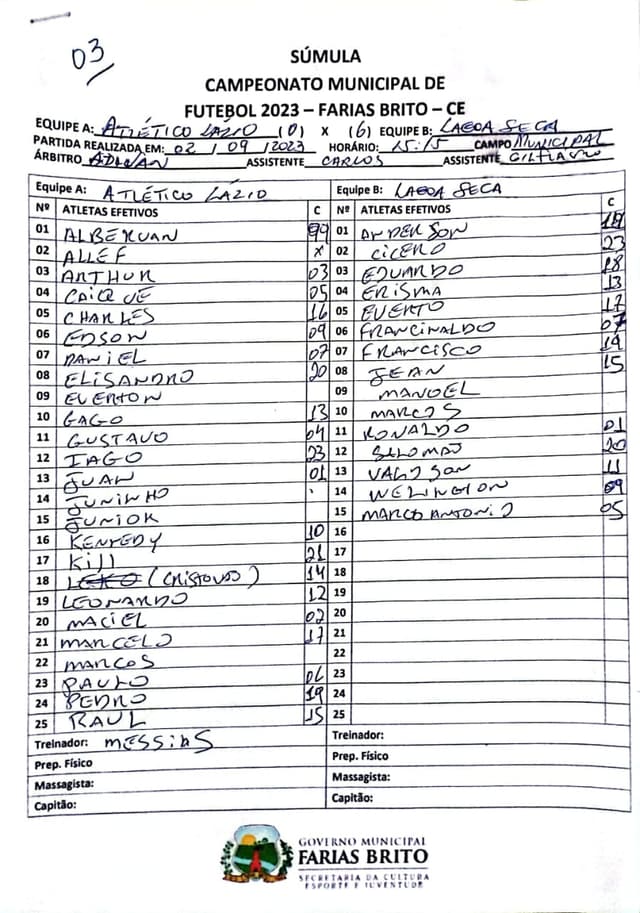 03
SÚMULA
CAMPEONATO MUNICIPAL DE
FUTEBOL 2023 – FARIAS BRITO – CE
EQUIPE A: ATLÉTICO LÁZIO (0) X (6) EQUIPE B: LAGOA SECA
PARTIDA REALIZADA EM: 02 / 09 / 2023 HORÁRIO: 15:15 CAMPO MUNICIPAL
ÁRBITRO ADIVAN ASSISTENTE CARLOS ASSISTENTE GILFLAVIO
Equipe A: ATLÉTICO LÁZIO
Nº ATLETAS EFETIVOS C
01 ALBERUAN 99
02 ALLEF x
03 ARTHUR 03
04 CAIQUE 05
05 CHARLES 16
06 EDSON 09
07 DANIEL 07
08 ELISANDRO 20
09 EVERTON
10 GAGO 13
11 GUSTAVO 04
12 IAGO 23
13 JUAN 01
14 JUNINHO
15 JUNIOR
16 KENYEDY 10
17 Kill 21
18 LEKO (CRISTOVÃO) 14
19 LEONARDO 12
20 MACIEL 02
21 MARCELO 17
22 MARCOS
23 PAULO 06
24 PEDRO 19
25 RAUL 15
Treinador: MESSIAS
Prep. Físico
Massagista:
Capitão:
Equipe B: LAGOA SECA
Nº ATLETAS EFETIVOS C
01 ANDERSON
02 CICERO 23
03 EDUARDO 18
04 ERISMA 13
05 EVERTO 17
06 FRANCINALDO 07
07 FRANCISCO 19
08 JEAN 15
09 MANOEL
10 MARCOS
11 RONALDO 01
12 SALOMÃO 20
13 VALDSON 11
14 WELINGTON 09
15 MARCO ANTONIO 05
16
17
18
19
20
21
22
23
24
25
Treinador:
Prep. Físico
Massagista:
Capitão:
GOVERNO MUNICIPAL
FARIAS BRITO
SECRETARIA DA CULTURA
ESPORTE E JUVENTUDE